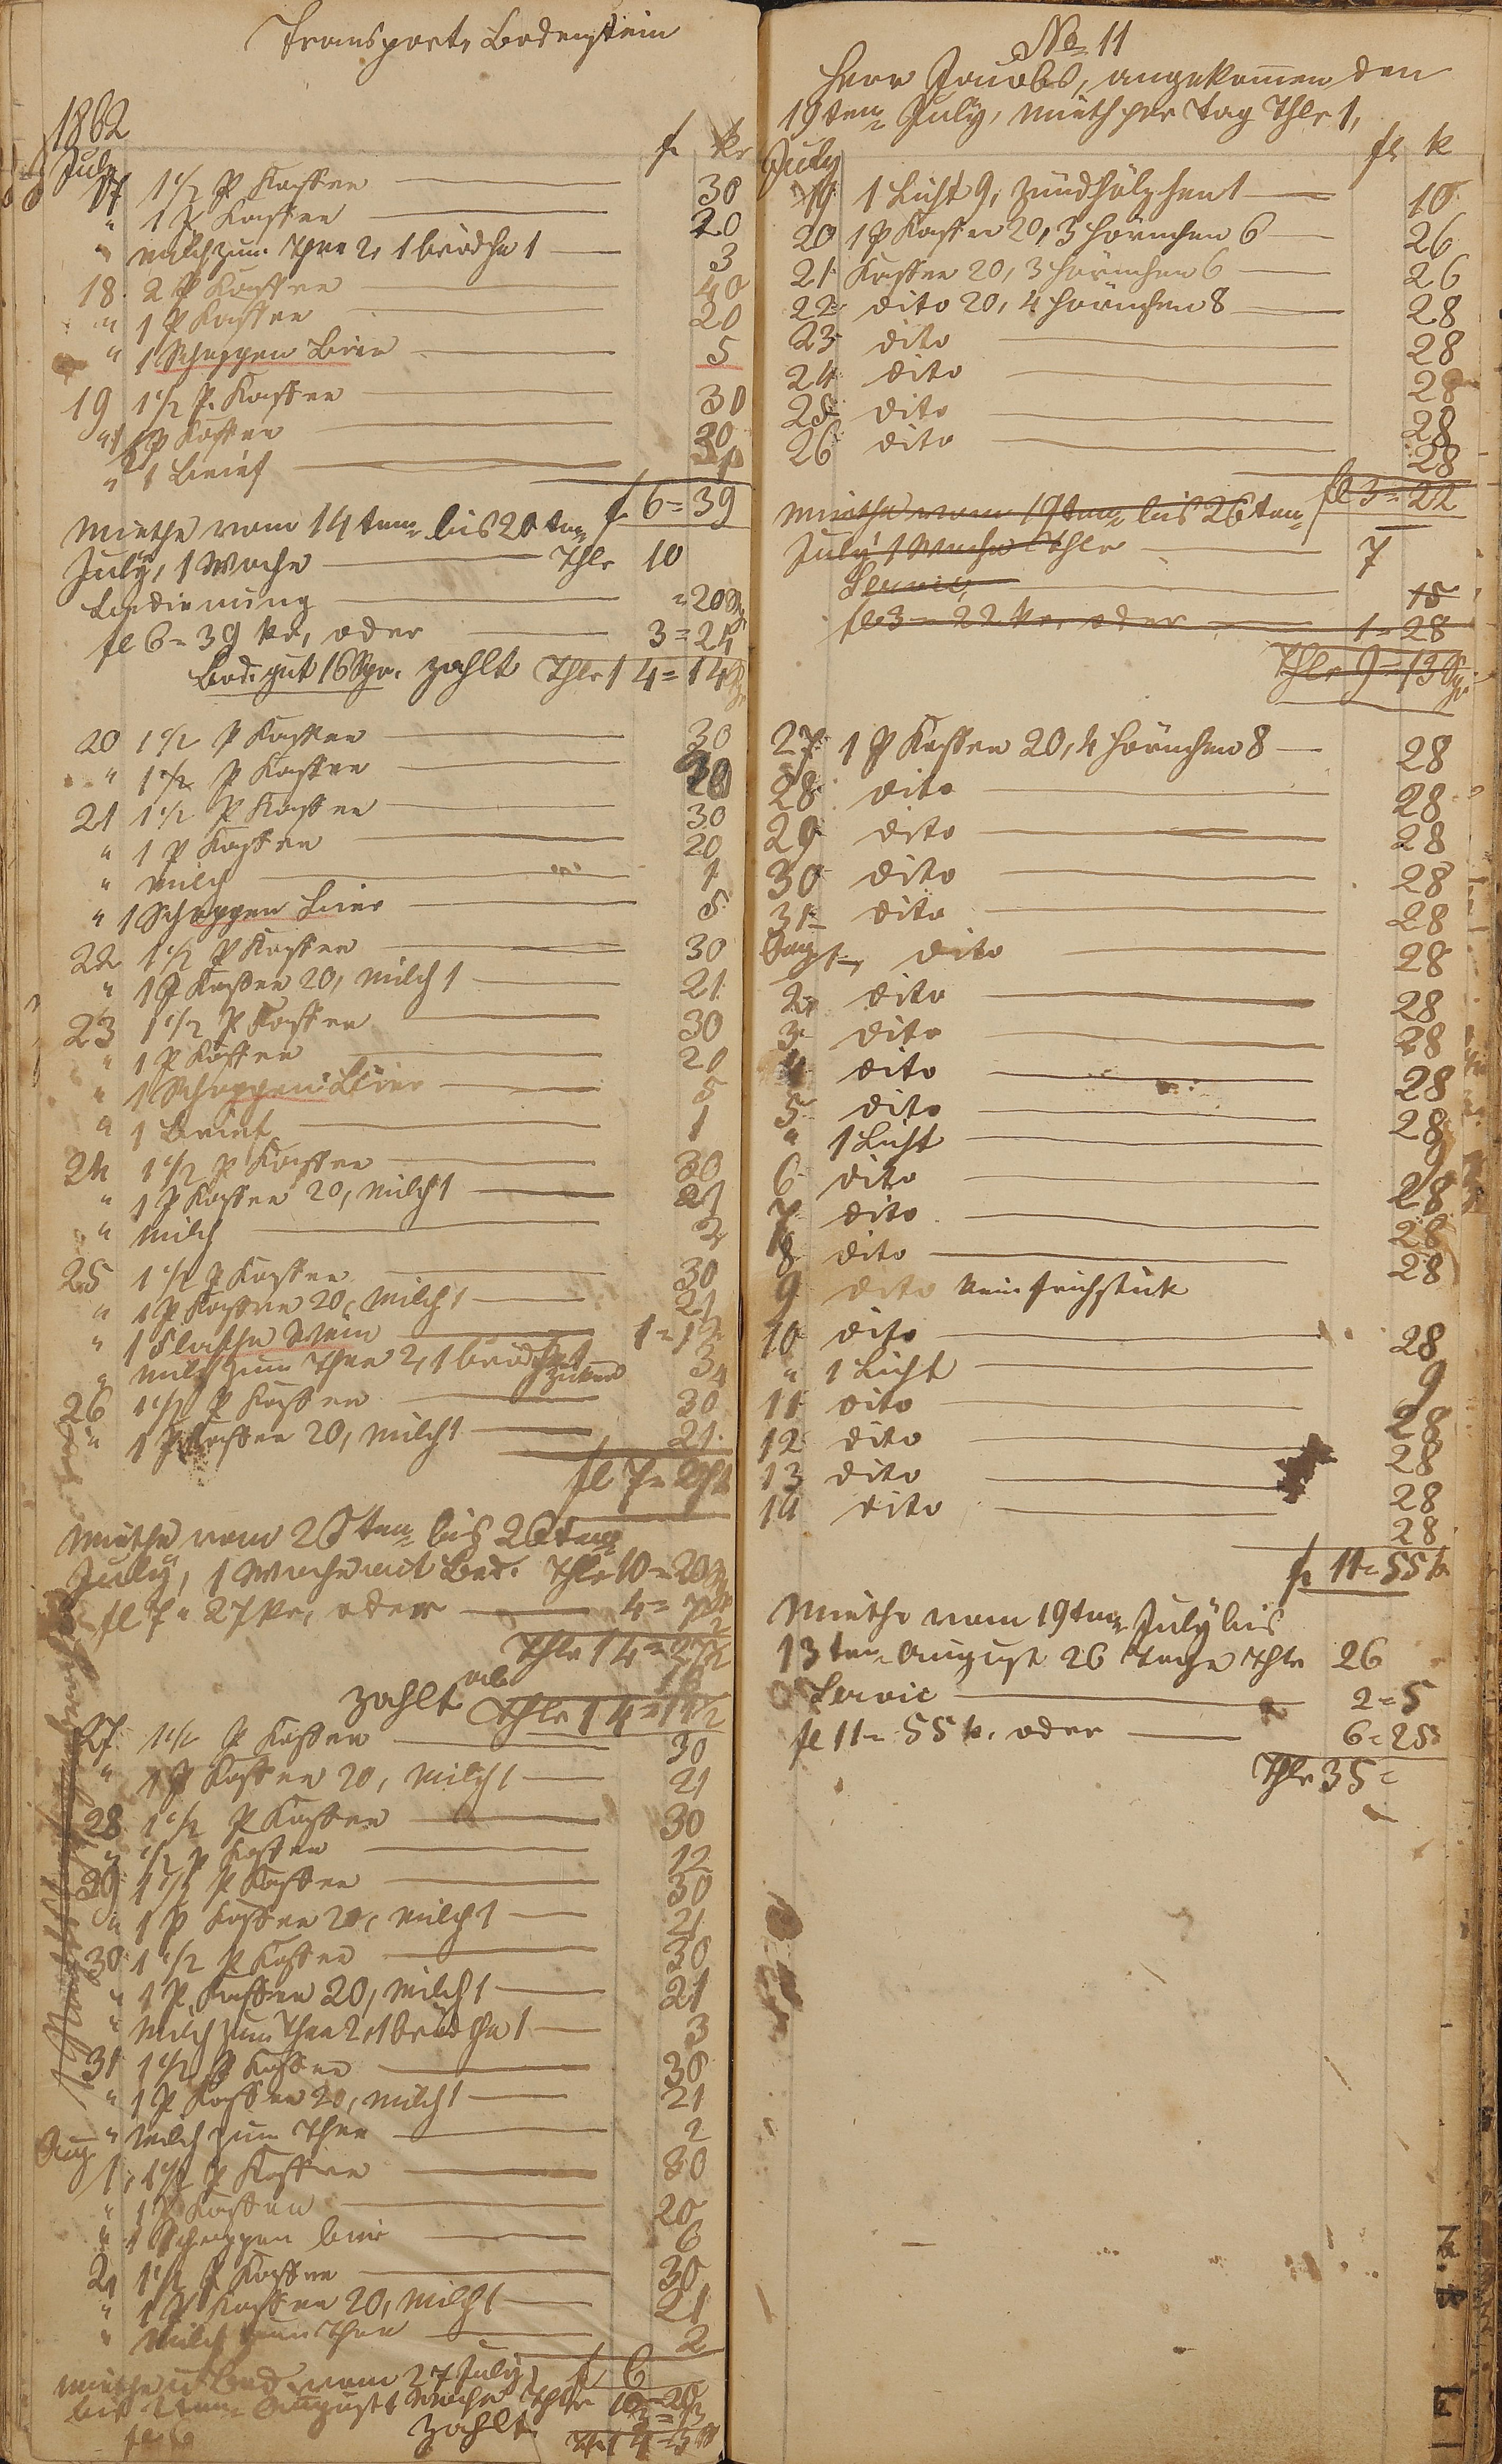 Transport, Bodenstein
1862
July f kr
17 1 1/2 P Kaffee 30
" 1 P Kaffee 20
" Milch zum Thee 2, 1 brödche 1 3
18 2 P Kaffee 40
" 1 P Kaffee 20
" 1 Schoppen Bier 5
19 1 1/2 P. Kaffee 30
" 1 P Kaffee 20
" 1 Brief 1
f 6 = 39
Miethe vom 14ten bis 20ten
July, 1 Woche Thlr 10
Bedienung = 20 Sg
fl 6 = 39 kr, oder 3 = 24
Bod. gut 16 Sgr. zahlt Thlr 14 = 14
20 1 1/2 P Kaffee 30
" 1 1/2 P Kaffee 30
21 1 1/2 P Kaffee 30
" 1 P Kaffee 20
" Milch 1
" 1 Schoppen Bier 5
22 1 1/2 P Kaffee 30
" 1 P Kaffee 20, Milch 1 21
23 1 1/2 P Kaffee 30
" 1 P Kaffee 20
" 1 Schoppen Bier 5
" 1 Brief 1
24 1 1/2 P Kaffee 30
" 1 P Kaffee 20, Milch 1 21
" Milch 2
25 1 1/2 P Kaffee 30
" 1 P Kaffee 20, Milch 1 21
" 1 Flasche Wein 1 = 12
" Milch zum Thee 2, 1 brödche 1 3
Zucker 4
26 1 1/2 P Kaffee 30
" 1 P Kaffee 20, Milch 1 21
fl 7 = 27
Miethe vom 20ten bis 26ten
July, 1 Woche mit Bed. Thlr 10 = 20
fl 7 = 27 kr, oder 4 = 7 1/2
Thlr 14 = 27 1/2
ab 16
zahlt Thlr 14 = 11 1/2
27 1 1/2 P Kaffee 30
" 1 P Kaffee 20, Milch 1 21
28 1 1/2 P Kaffee 30
" 1/2 P Kaffee 12
29 1 1/2 P Kaffee 30
" 1 P Kaffee 20, Milch 1 21
30 1 1/2 P Kaffee 30
" 1 P. Kaffee 20, Milch 1 21
" Milch zum Thee 2, 1 brödche 1 3
31 1 1/2 P Kaffee 30
" 1 P Kaffee 20, Milch 1 21
" Milch zum Thee 2
Aug.
1, 1 1/2 P Kaffee 30
" 1 P Kaffee 20
" 1 Schoppen bier 6
2, 1 1/2 P Kaffee 30
" 1 P Kaffee 20, Milch 1 21
" Milch zum Thee 2
f 6
Miethe u Bed. vom 27 July
bis 2ten August 1 Woche Thlr 10 = 20
fl 6
zahlt
No 11
Herr Jacobs, angekommen den
19ten July, Mieth per Tag Thlr 1,
July fl k
19 1 Licht 9, Zündhölzchen 1 10
20 1 P Kaffee 20, 3 Hörnchen 6 26
21 Kaffee 20, 3 Hörnchen 6 26
22 dito 20, 4 Hörnchen 8 28
23 dito 28
24 dito 28
25 dito 28
26 dito 28
fl 3 = 22
Miethe vom 19ten bis 26ten
July 1 Woche Thlr 7
Servic, 15
fl 3 = 22 kr, oder 1 = 28
Thlr 9 = 13 Sgr
27 1 P Kaffee 20, 4 Hörnchen 8 28
28 dito 28
29 dito 28
30 dito 28
31 dito 28
Aug 1, dito 28
2, dito 28
3 dito 28
4 dito 28
5 dito 28
" 1 Licht 9
6 dito 28
7 dito 28
8 dito 28
9 dito kein Frühstück
10 dito 28
" 1 Licht 9
11 dito 28
12 dito 28
13 dito 28
14 dito 28
f 11 = 55 k
Miethe vom 19ten July bis
13ten August 26 Tage Thlr 26
Servic 2 = 5
fl 11 = 55 k. oder 6 = 25
Thlr 35 =